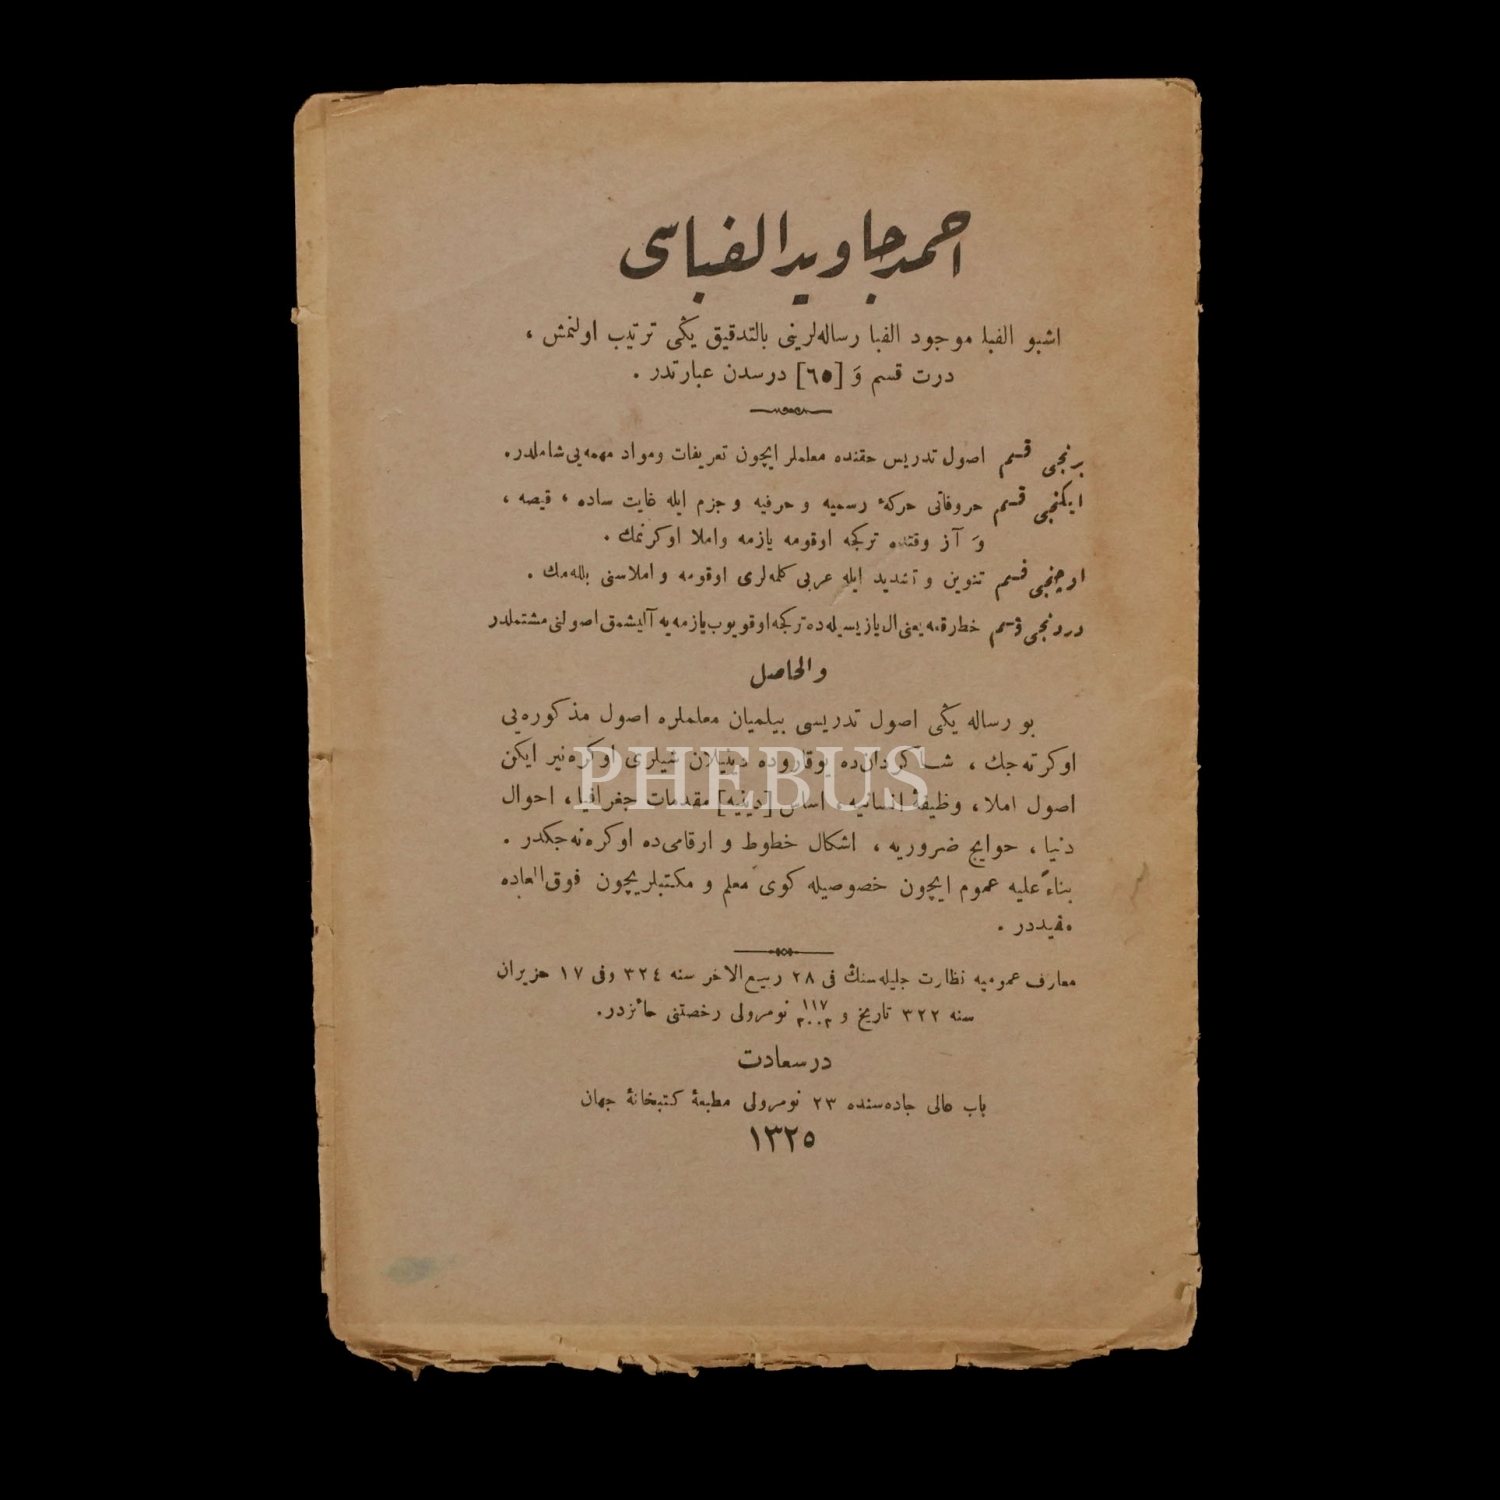 احمد جاويد الفباسى
اشبو الفبا موجود الفبا رساله‌لرينى بالتدقيق يڭى ترتيب اولنمش ،
درت قسم وَ [٦٥] درسدن عبارتدر .
برنجى قسم اصول تدريس حقنده معلملر ايچون تعريفات ومواد مهمه‌يى شاملدر.
ايكنجى قسم حروفاتى حركهٔ رسميه و حرفيه و جزم ايله غايت ساده ، قيصه ،
وَ آز وقتده تركجه اوقومه يازمه واملا اوكرنمك .
اوچنجى قسم تنوين و تشديد ايله عربى كلمه‌لرى اوقومه و املاسنى بلله‌مك .
دردنجى قسم خط رقعه يعنى ال يازيسيله‌ده تركجه اوقويوب يازمه‌يه آليشمق اصولنى مشتملدر
والحاصل
بو رساله يڭى اصول تدريسى بيلميان معلملره اصول مذكوره‌يى
اوكرته‌جك ، شاكردان‌ده يوقاروده دينيلان شيلرى اوكره‌نير ايكن
اصول املا ، وظيفهٔ انسانيه ، اساس [دينيه] مقدمات جغرافيا ، احوال
دنيا ، حوايج ضروريه ، اشكال خطوط و ارقامى‌ده اوكره‌نه‌جكدر .
بناءً عليه عموم ايچون خصوصيله كوى معلم و مكتبلريچون فوق العاده
مفيددر .
معارف عموميه نظارت جليله‌سنڭ فى ٢٨ ربيع الاخر سنه ٣٢٤ وفى ١٧ حزيران
سنه ٣٢٢ تاريخ و ١١٧ نومرولى رخصتنى حائزدر.
درسعادت
باب عالى جاده‌سنده ٢٣ نومرولى مطبعهٔ كتبخانهٔ جهان
١٣٢٥
PHEBUS